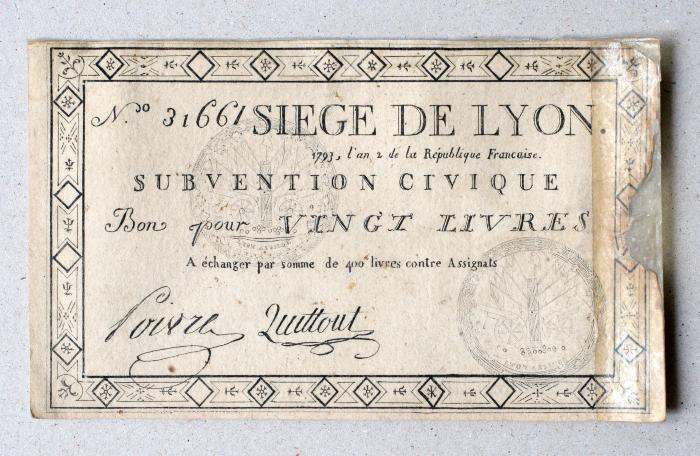 N.º 31661 SIEGE DE LYON.
1793, l'an 2 de la République Francaise.
SUBVENTION CIVIQUE
Bon pour VINGT LIVRES
A échanger par somme de 400 livres contre Assignats
Poivre Quittout
LYON ASSIEGE